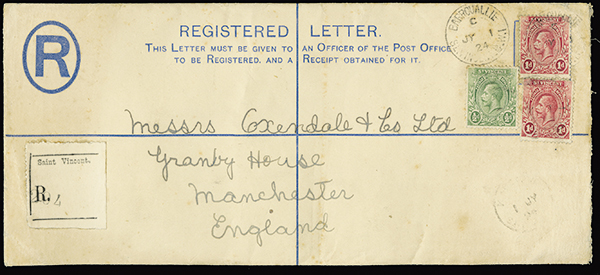 R
REGISTERED LETTER.
THIS LETTER MUST BE GIVEN TO AN OFFICER OF THE POST OFFICE
TO BE REGISTERED, AND A RECEIPT OBTAINED FOR IT.
C
JY 1
24
1d
½d
1d
Messrs Oxendale & Co Ltd
Granby House
Manchester
England
Saint Vincent.
R.
JY